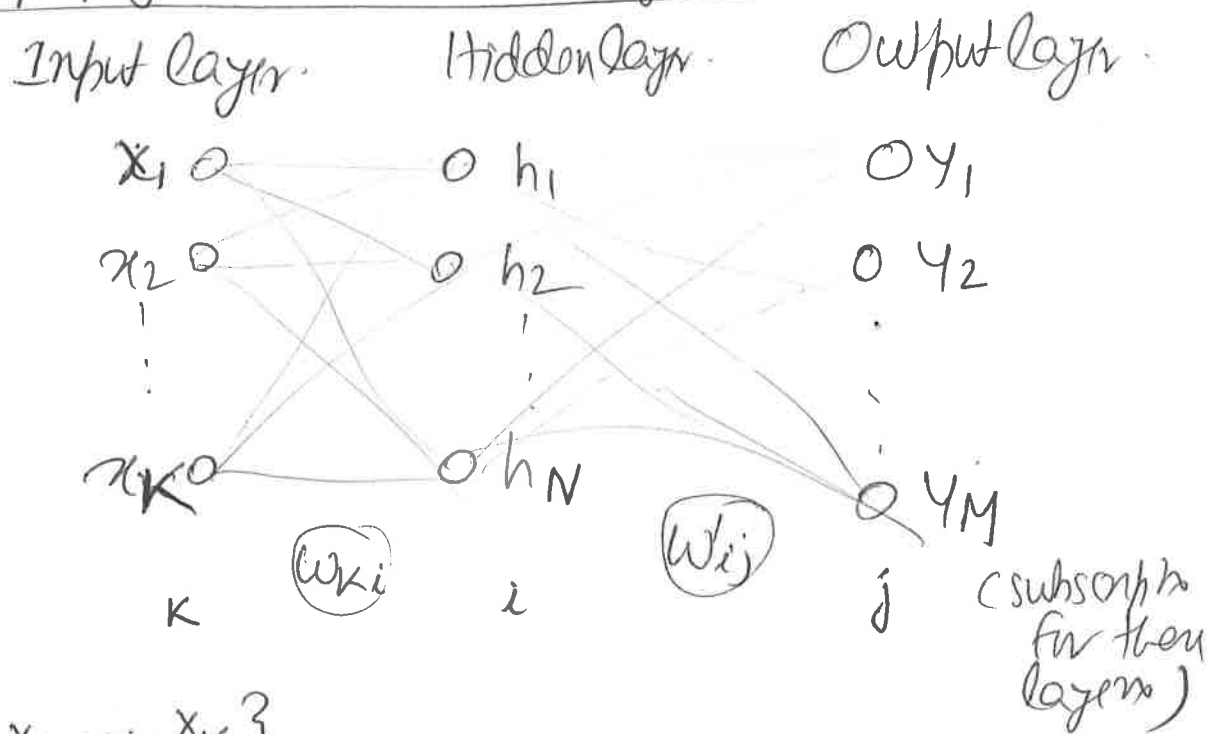 Input layer. Hidden layer. Output layer.
x1 h1 y1
x2 h2 y2
xK hN yM
wKi w'ij
K i j (subscripts
for these
layers)
xK}